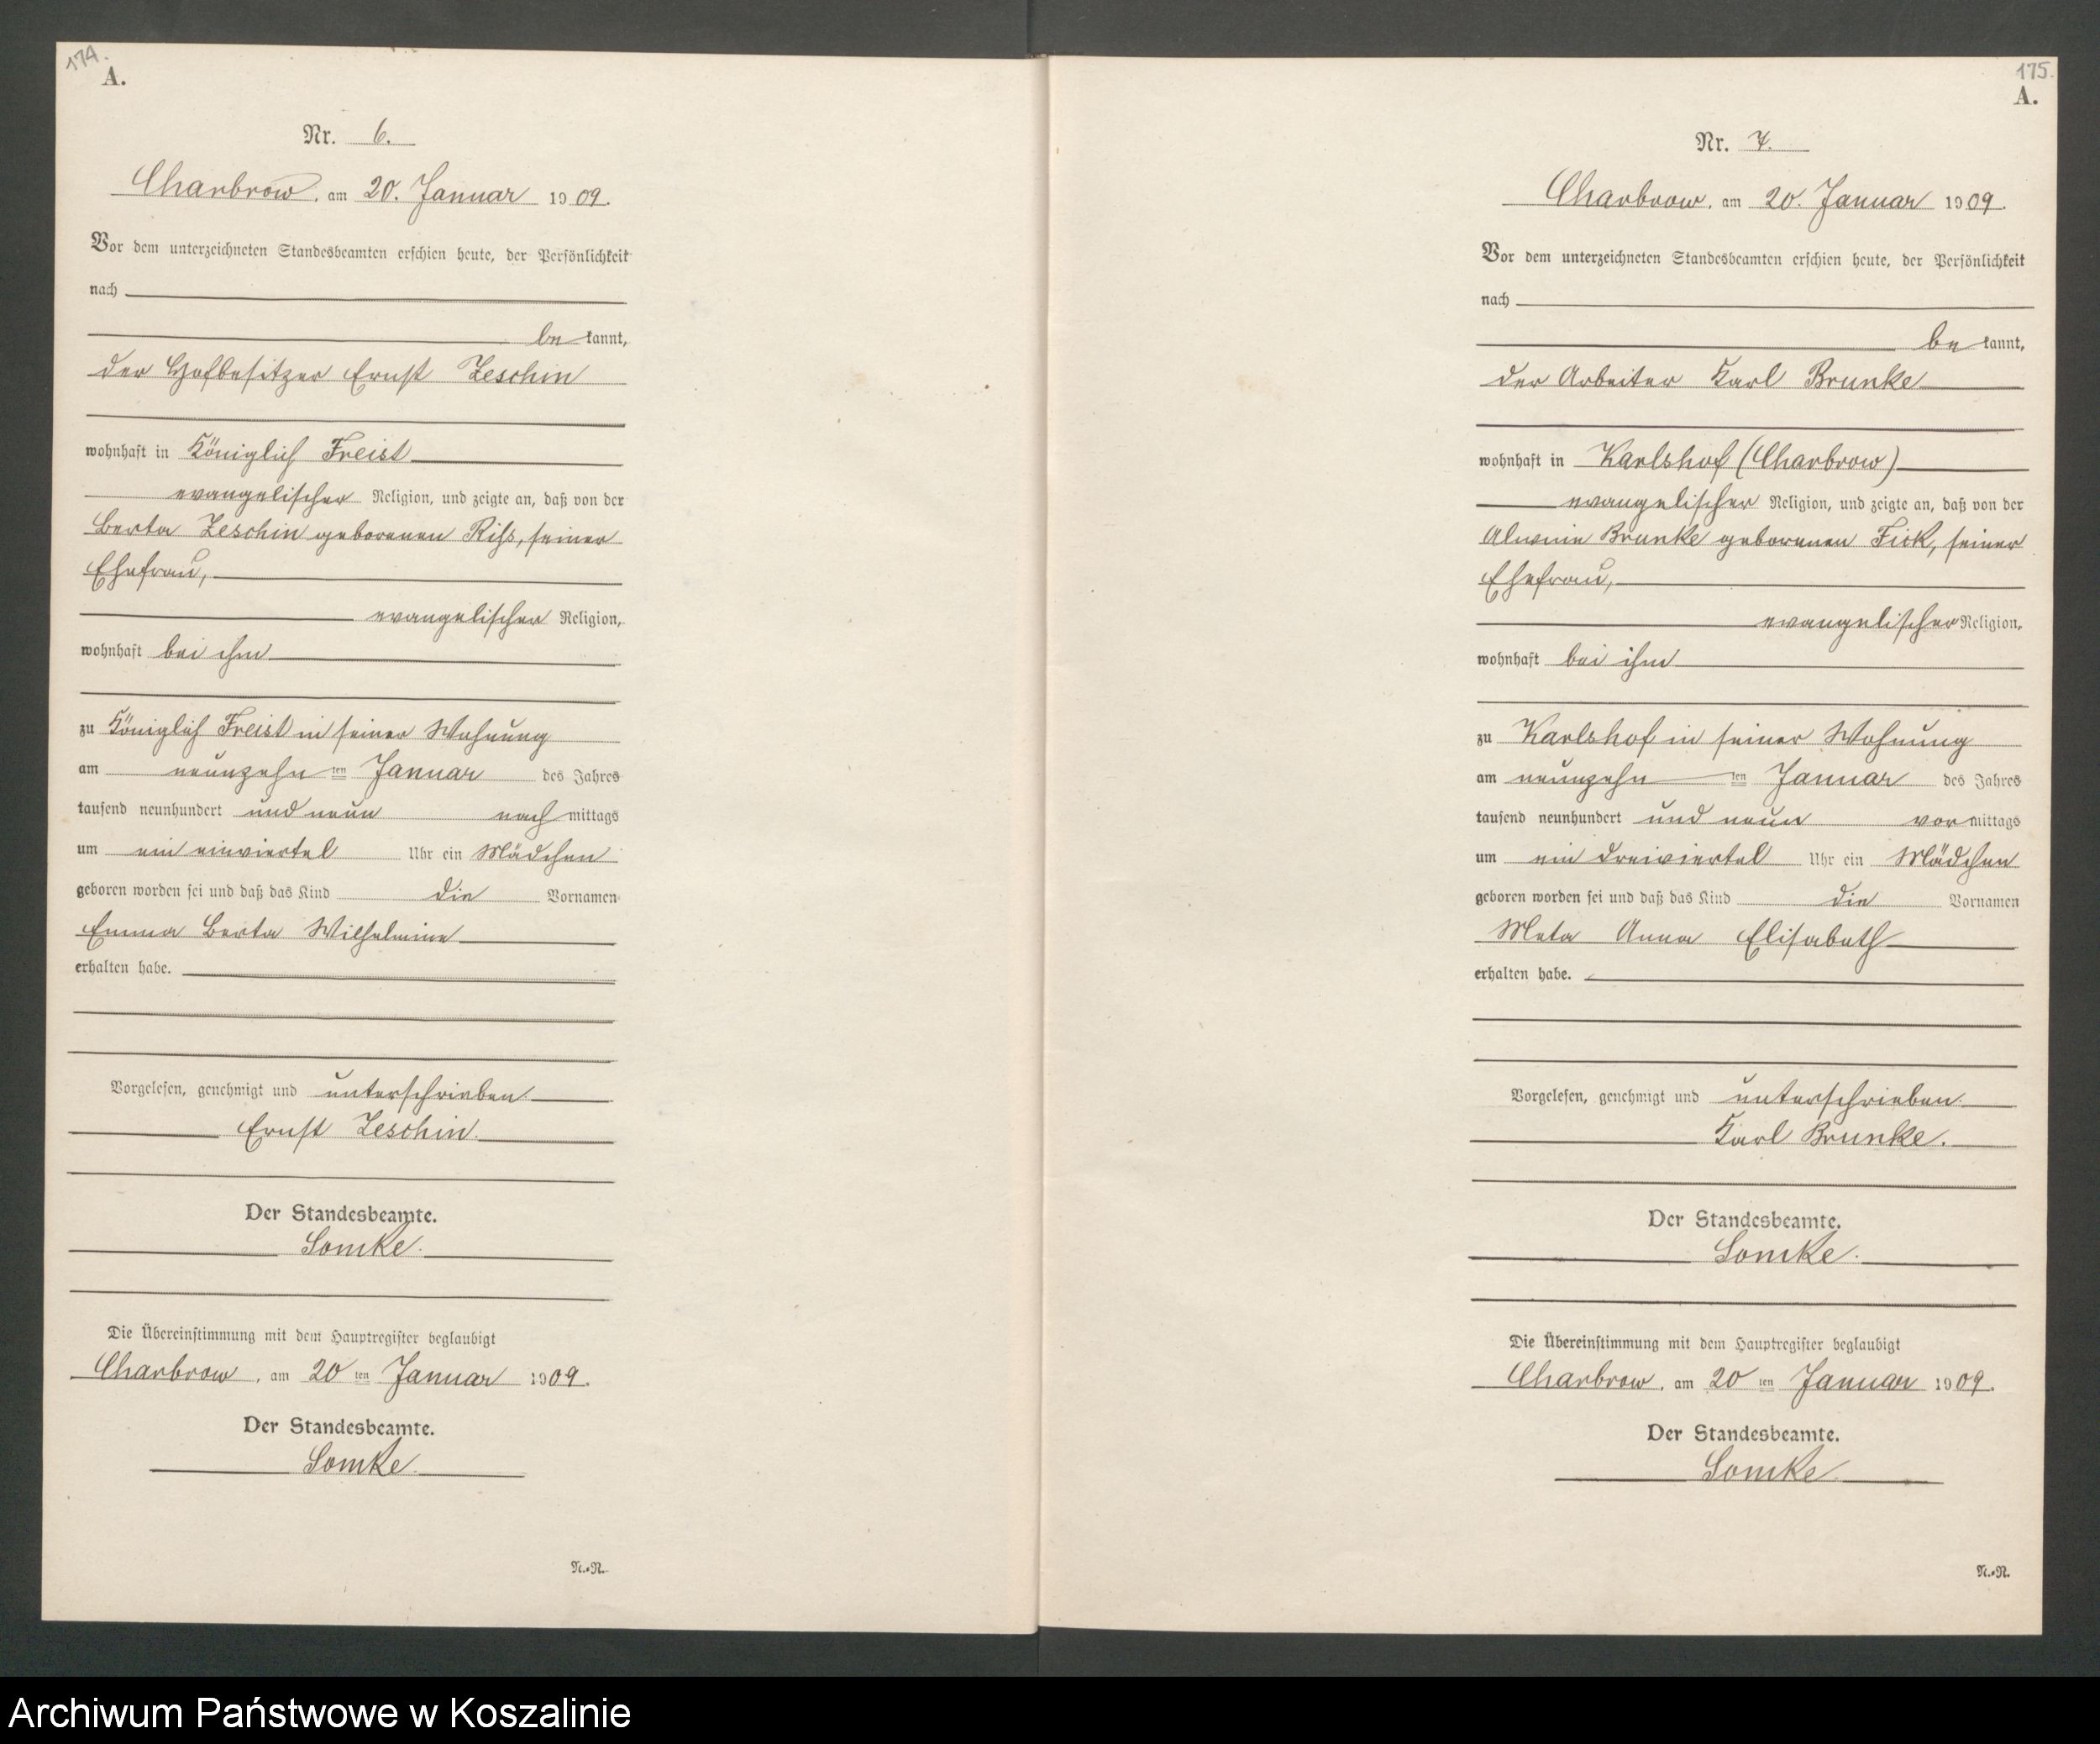 174.
A.
Nr. 6.
Charbrow, am 20. Januar 1909.
Vor dem unterzeichneten Standesbeamten erschien heute, der Persönlichkeit
nach
be kannt,
der Hofbesitzer Ernst Zeschin
wohnhaft in Königlich Freist
evangelischer Religion, und zeigte an, daß von der
Berta Zeschin geborenen Riss, seiner
Ehefrau,
evangelischer Religion,
wohnhaft bei ihm
zu Königlich Freist in seiner Wohnung
am neunzehn ten Januar des Jahres
tausend neunhundert und neun nach mittags
um ein einviertel Uhr ein Mädchen
geboren worden sei und daß das Kind die Vornamen
Emma Berta Wilhelmine
erhalten habe.
Vorgelesen, genehmigt und unterschrieben
Ernst Zeschin.
Der Standesbeamte.
Lomke.
Die Übereinstimmung mit dem Hauptregister beglaubigt
Charbrow, am 20 ten Januar 1909.
Der Standesbeamte.
Lomke.
N.=R.
175.
A.
Nr. 7.
Charbrow, am 20. Januar 1909.
Vor dem unterzeichneten Standesbeamten erschien heute, der Persönlichkeit
nach
be kannt,
der Arbeiter Karl Brunke
wohnhaft in Karlshof (Charbrow)
evangelischer Religion, und zeigte an, daß von der
Alwine Brunke geborenen Fick, seiner
Ehefrau,
evangelischer Religion,
wohnhaft bei ihm
zu Karlshof in seiner Wohnung
am neunzehn ten Januar des Jahres
tausend neunhundert und neun vor mittags
um ein dreiviertel Uhr ein Mädchen
geboren worden sei und daß das Kind die Vornamen
Meta Anna Elisabeth
erhalten habe.
Vorgelesen, genehmigt und unterschrieben.
Karl Brunke.
Der Standesbeamte.
Lomke.
Die Übereinstimmung mit dem Hauptregister beglaubigt
Charbrow, am 20 ten Januar 1909.
Der Standesbeamte.
Lomke.
N.=R.
Archiwum Państwowe w Koszalinie